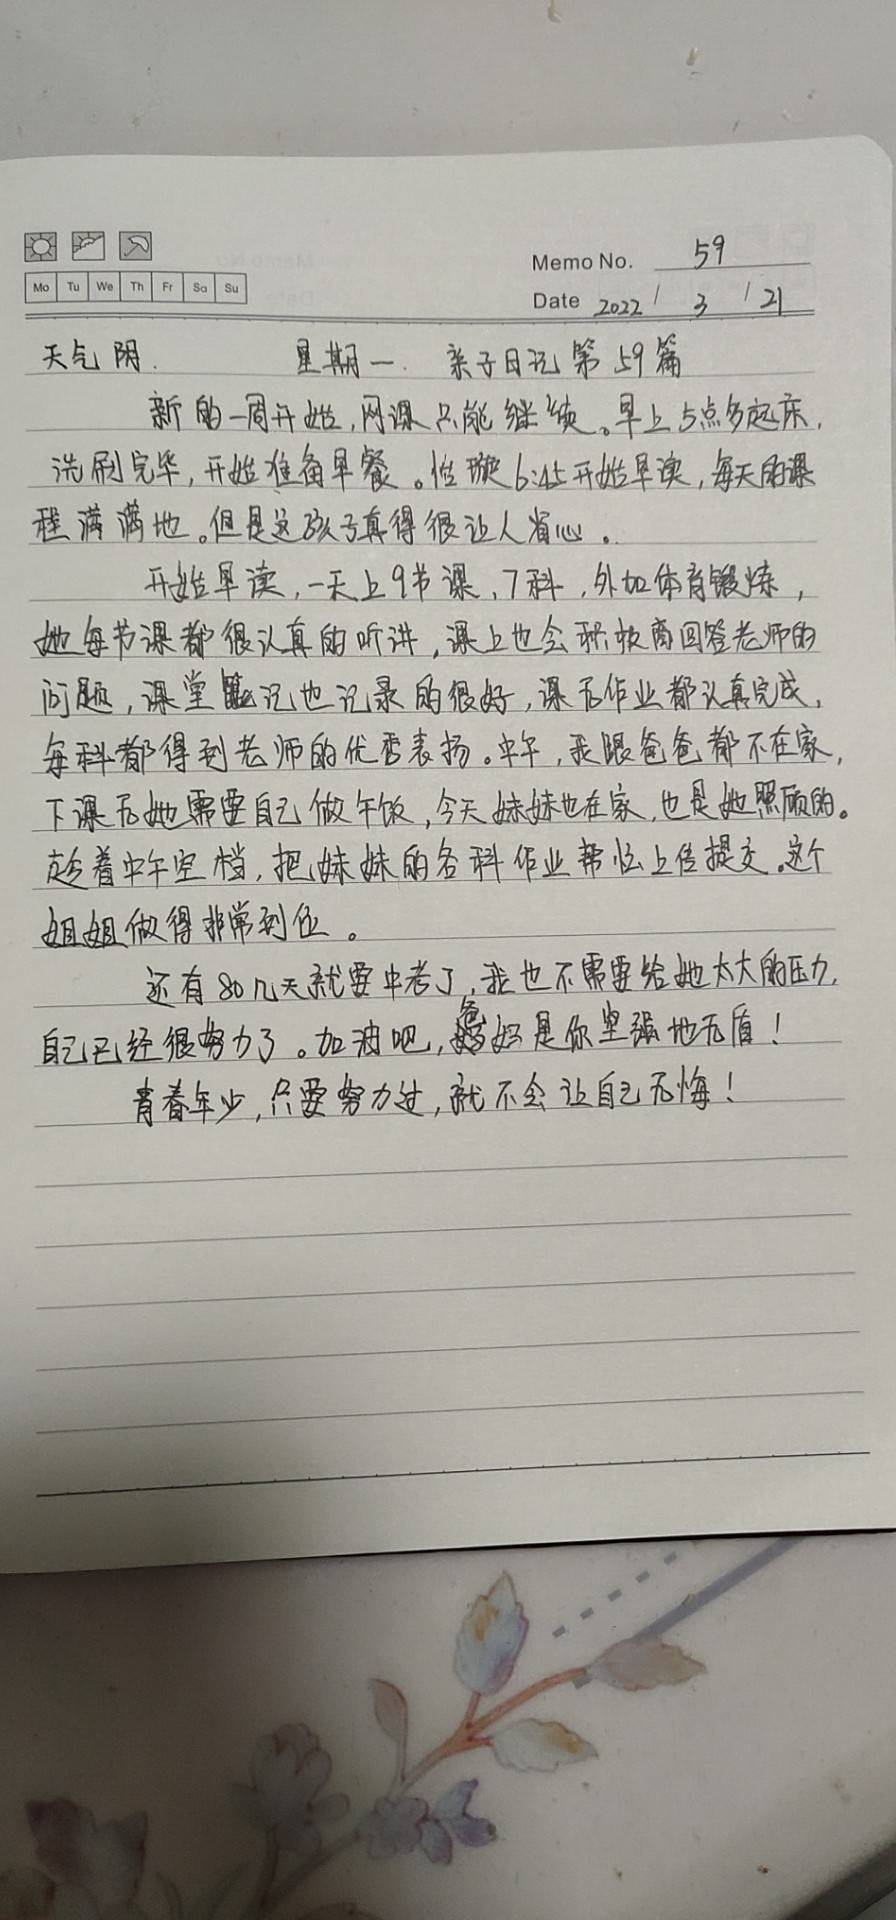 Memo No. 59
Mo Tu We Th Fr Sa Su
Date 2022 / 3 / 21
天气阴. 星期一. 亲子日记第59篇
新的一周开始,网课只能继续。早上5点多起床,
洗刷完毕,开始准备早餐。怡璇6:45开始早读,每天的课
程满满地。但是这孩子真得很让人省心。
开始早读,一天上9节课,7科,外加体育锻炼,
她每节课都很认真的听讲,课上也会积极高回答老师的
问题,课堂笔记也记录的很好,课后作业都认真完成,
每科都得到老师的优秀表扬。中午,我跟爸爸都不在家,
下课后她需要自己做午饭,今天妹妹也在家,也是她照顾的。
趁着中午空档,把妹妹的各科作业帮忙上传提交。这个
姐姐做得非常到位。
还有80几天就要中考了,我也不需要给她太大的压力,
自己已经很努力了。加油吧,爸妈是你坚强地后盾!
青春年少,只要努力过,就不会让自己后悔!